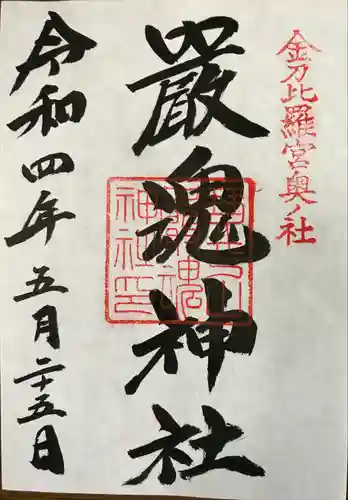 金刀比羅宮奥ノ社
嚴魂神社
令和四年五月二十五日